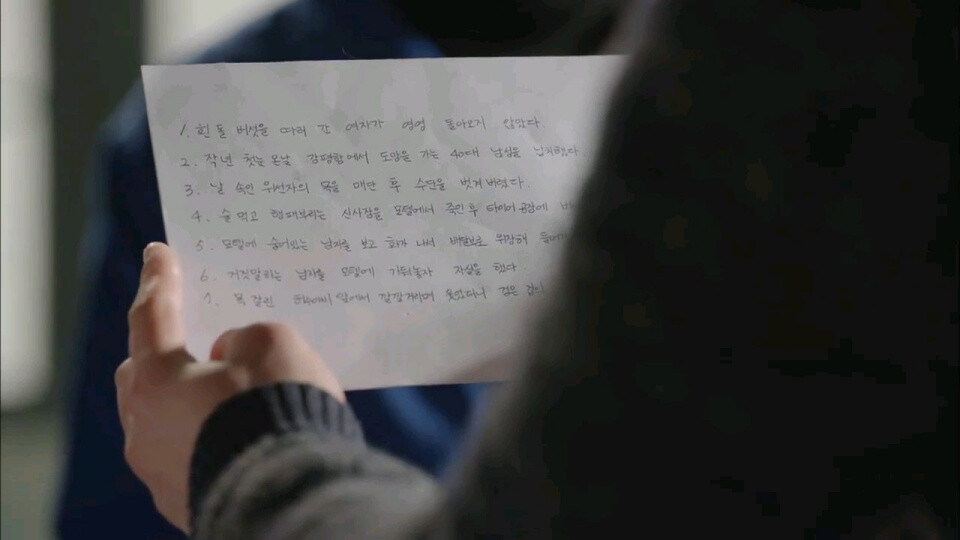 1. 흰 돌 버섯을 따러 간 여자가 영영 돌아오지 않았다
2. 작년 첫눈 온날 강평함에서 도망을 가는 40대 남성을 납치했다.
3. 날 속인 위선자의 목을 매단 후 수단을 벗겨버렸다.
4. 술 먹고 행패부리는 신사장을 모텔에서 죽인 후 타이어 공장에
5. 모텔에 숨어있는 남자를 보고 화가 나서 배달부로 위장해
6. 거짓말하는 남자를 모텔에 가둬놓자 자살을 했다
7. 목 잘린 앞에서 검은